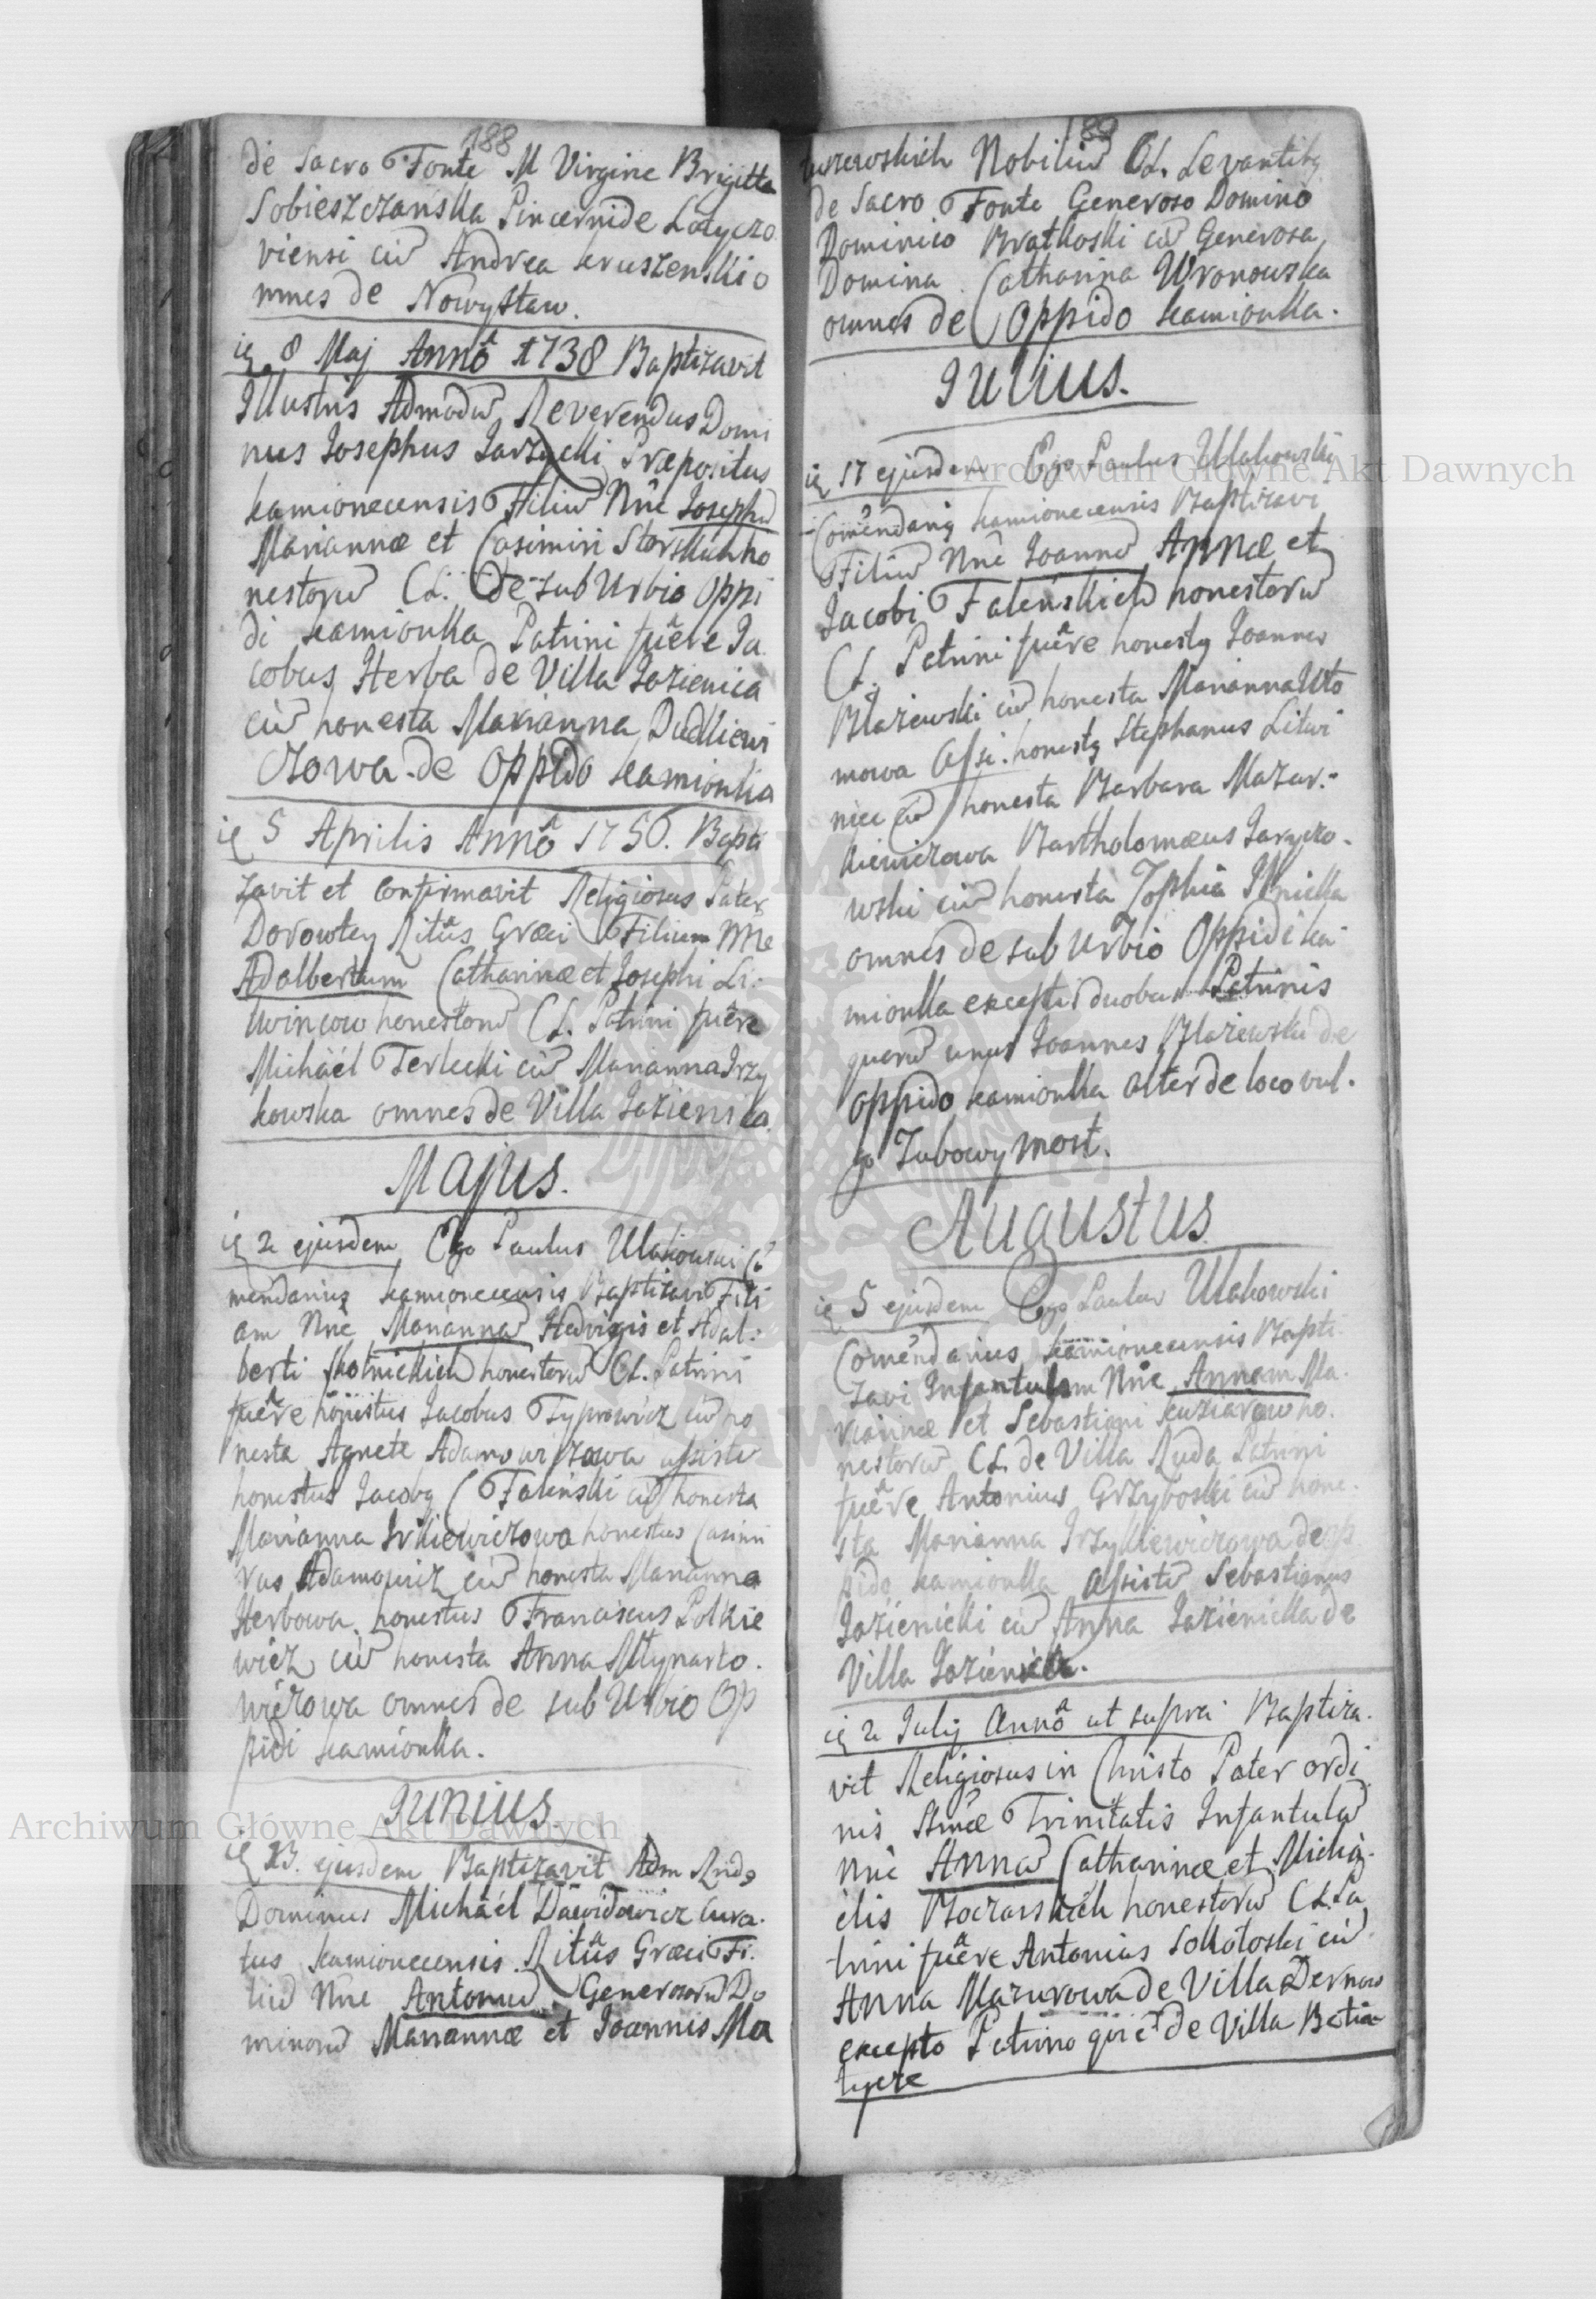 188
de Sacro Fonte M Virgine Brigitta
Sobieszczanska Pincernide Latyczo
viensi cũ Andrea Kruszenski o
mnes de Nowystaw.
8 Maj Annô 1738 Baptizavit
Illustris Admodũ Reverendus Domi
nus Josephus Jarzycki Præpositus
Kamionecensis Filiũ Nñe Josephũ
Mariannæ et Casimiri Storskich ho
nestorũ CL. de sub Urbio Oppi
di Kamionka Patrini fuêre Ja
cobus Herba de Villa Jazienica
cũ honesta Marianna Dudkiewi
czowa de Oppido Kamionka
5 Aprilis Annô 1750. Bapti
zavit et Confirmavit Religiosus Pater
Dorowtey Ritûs Græci Filium Nñe
Adalbertum Catharinæ et Josephi Li.
twincow honestorũ CL. Patrini fuêre
Michäel Terlecki cũ Marianna Irzy
kowska omnes de Villa Jazienica
Majus.
2 ejusdem Ego Paulus Ulakowski Cõ
mendarius Kamionecensis Baptizavi Fili
am Nñe Mariannũ Hedvigis et Adal:
berti Skotnickich honestorũ CL. Patrini
fuêre honestus Jacobus Typrowicz cũ ho
nesta Agnete Adamowiczowa assistũ
honestus Jacobg Falenski cũ honesta
Marianna Irkiewiczowa honestus Casimi
rus Adamowicz cũ honesta Marianna
Herbowa honestus Franciscus Polkie
wicz cũ honesta Anna Młynarko.
wiczowa omnes de sub Urbio Op
pidi Kamionka.
Junius
13. ejusdem Baptizavit Adm Rnds
Dominus Michäel Dawidowicz Cura.
tus Kamionecensis Ritûs Græci Fi.
liũ Nñe Antoniũ Generosorũ Do
minorũ Mariannæ et Joannis Ma
189
uszewskich Nobiliũ CL. Levantibg
de Sacro Fonte Generoso Domino
Dominico Bratkoski cũ Generosa
Domina Catharina Wronowska
omnes de Oppido Kamionka.
Julius.
17 ejusdem Ego Paulus Ulakowski
Comẽndarig Kamionecensis Baptizavi
Filiũ Nñe Joannũ Annæ et
Jacobi Falenskich honestorũ
CL. Patrini fuêre honestg Joannes
Błazewski cũ honesta Marianna Uto
mowa Assi. honestg Stephanus Litwi
nice cũ honesta Barbara Mazur:
kiewiczowa Bartholomæus Jaryczo.
wski cũ honesta Zophia Ilnicka
omnes de sub Urbio Oppidi Ka
mionka exceptis duobus Patrinis
quorũ unus Joannes Błazewski de
Oppido Kamionka alter de loco vul.
go Zubowy most.
Augustus
5 ejusdem Ego Paulus Ulakowski
Comẽndarius Kamionecensis Bapti.
zavi Infantulam Nñe Annam Ma.
riannæ et Sebastiani Kuziarow ho.
nestorũ CL. de Villa Ruda Patrini
fuêre Antonius Grzyboski cũ hone.
sta Marianna Irzykiewiczowa de Op
pido Kamionka assistũ Sebastianus
Jazienicki cũ Anna Jazienicka de
Villa Jazienica.
2 Julij Annô ut supra Baptiza.
vit Religiosus in Christo Pater Ordi
nis Smæ Trinitatis Infantulã
Nñe Annã Catharinæ et Michä.
elis Boczarskich honestorũ CL. Pa
trini fuêre Antonius Sokołoski cũ
Anna Mazurowa de Villa Dernow
excepto Patrino qui ẽ de Villa Batia
tycze
Archiwum Główne Akt Dawnych
Archiwum Główne Akt Dawnych